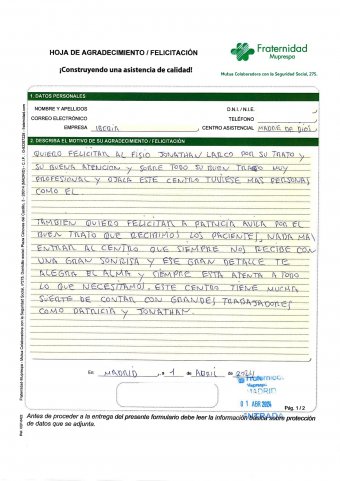 HOJA DE AGRADECIMIENTO / FELICITACIÓN
¡Construyendo una asistencia de calidad!
Fraternidad
Muprespa
Mutua Colaboradora con la Seguridad Social, 275.
1. DATOS PERSONALES
NOMBRE Y APELLIDOS
D.N.I. / N.I.E.
CORREO ELECTRÓNICO
TELÉFONO
EMPRESA IBERIA
CENTRO ASISTENCIAL MADRE DE DIOS
2. DESCRIBA EL MOTIVO DE SU AGRADECIMIENTO / FELICITACIÓN
QUIERO FELICITAR AL FISIO JONATHAN LARCO POR SU TRATO Y
SU BUENA ATENCION Y SOBRE TODO SU BUEN TRATO MUY
PROFESIONAL Y OJALA ESTE CENTRO TUVIESE MAS PERSONAS
COMO EL.
TAMBIEN QUIERO FELICITAR A PATRICIA AVILA POR EL
BUEN TRATO QUE RECIBIMOS LOS PACIENTES, NADA MAS
ENTRAR AL CENTRO QUE SIEMPRE NOS RECIBE CON
UNA GRAN SONRISA Y ESE GRAN DETALLE TE
ALEGRA EL ALMA Y SIEMPRE ESTA ATENTA A TODO
LO QUE NECESITAMOS. ESTE CENTRO TIENE MUCHA
SUERTE DE CONTAR CON GRANDES TRABAJADORES
COMO PATRICIA Y JONATHAN.
En MADRID, a 1 de ABRIL de 2024
MADRID
01 ABR 2024
ENTRADA
Pág. 1 / 2
Antes de proceder a la entrega del presente formulario debe leer la información básica sobre protección
de datos que se adjunta.